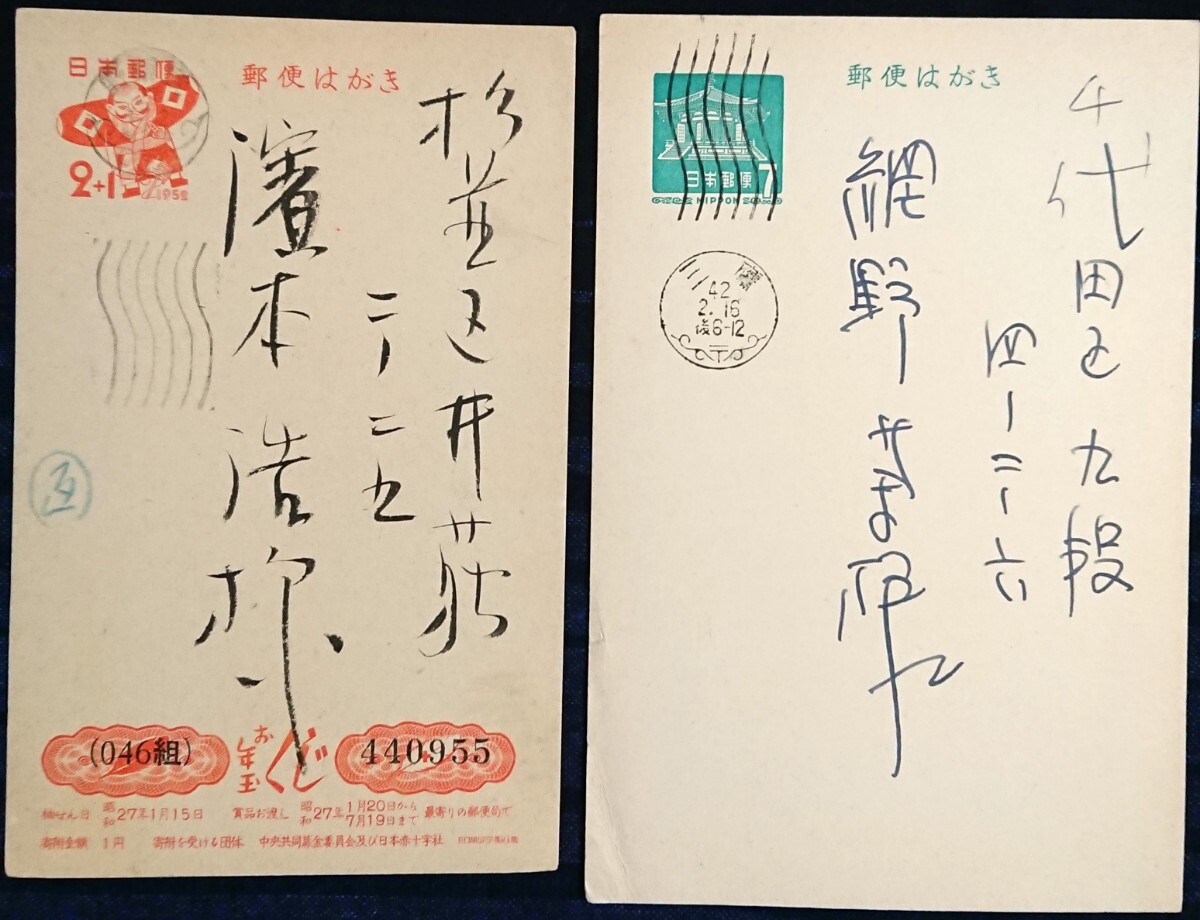 日本郵便
郵便はがき
2+1
1952
杉並区井荻
二ノ二五
濱本浩様
(046組)
お年玉くじ
440955
抽せん日 昭和27年1月15日 賞品お渡し 昭和27年1月20日から7月19日まで 最寄りの郵便局で
寄附金額 1円 寄附を受ける団体 中央共同募金委員会及び日本赤十字社
郵便はがき
日本郵便 7
NIPPON
三鷹
42
2.16
後6-12
千代田区九段
四ー二ー六
網野菊様